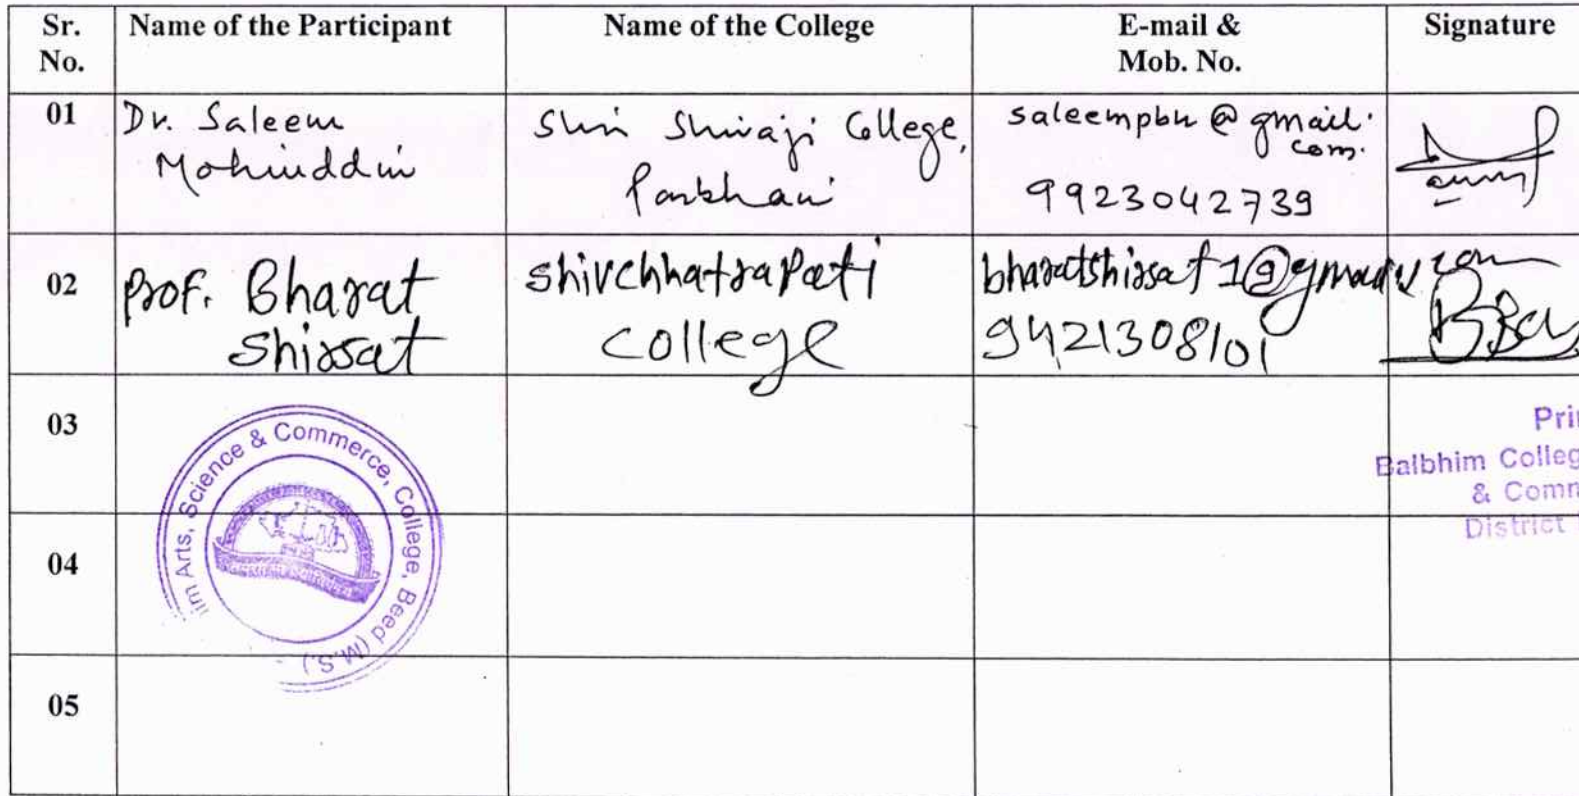 Sr. No.
Name of the Participant
Name of the College
E-mail & Mob. No.
Signature
01
Dr. Saleem
Mohiuddin
Shri Shivaji College,
Parbhani
saleempbn@gmail.
com.
9923042739
02
Prof. Bharat
Shirsat
Shivchhatrapati
College
bharatshirsat1@gmail.com
9421308101
03
Prin
Balbhim Colleg
& Comm
District
im Arts, Science & Commerce, College, Beed (M.S.)
04
05